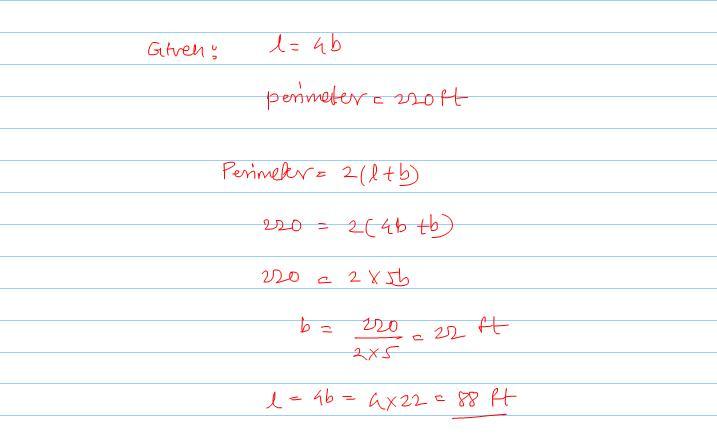 Given: l = 4b
perimeter = 220 ft
Perimeter = 2(l+b)
220 = 2(4b+b)
220 = 2 × 5b
b = 220/2×5 = 22 ft
l = 4b = 4×22 = 88 ft